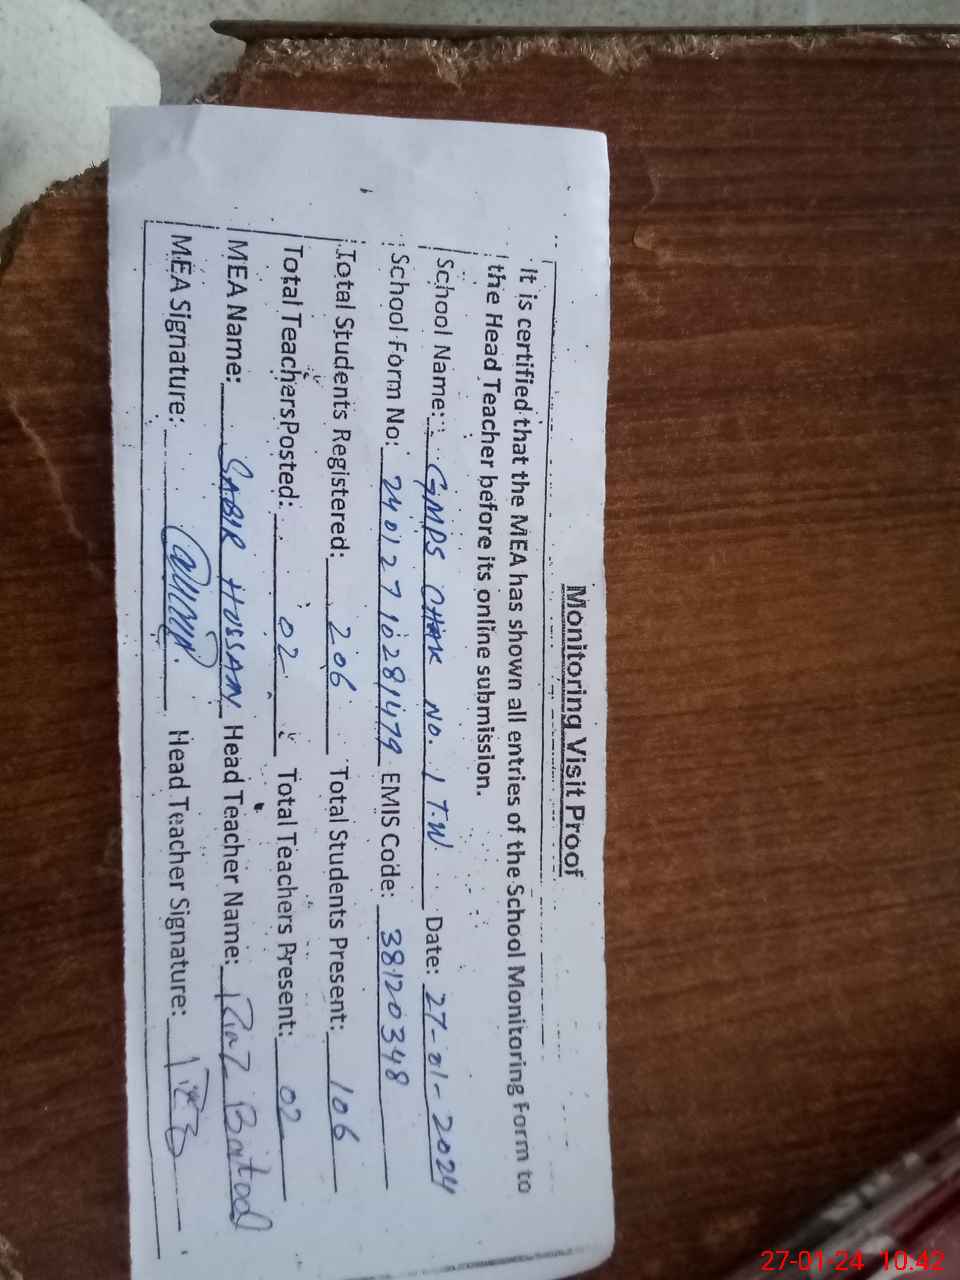 Monitoring Visit Proof
It is certified that the MEA has shown all entries of the School Monitoring Form to
the Head Teacher before its online submission.
School Name: GMPS CHAK NO. 1 T.W Date: 27-01-2024
School Form No: 24012710281479 EMIS Code: 38120348
Total Students Registered: 206 Total Students Present: 106
Total Teachers Posted: 02 Total Teachers Present: 02
MEA Name: SABIR HUSSAIN Head Teacher Name: Riaz Batool
MEA Signature: Head Teacher Signature:
27-01-24 10:42